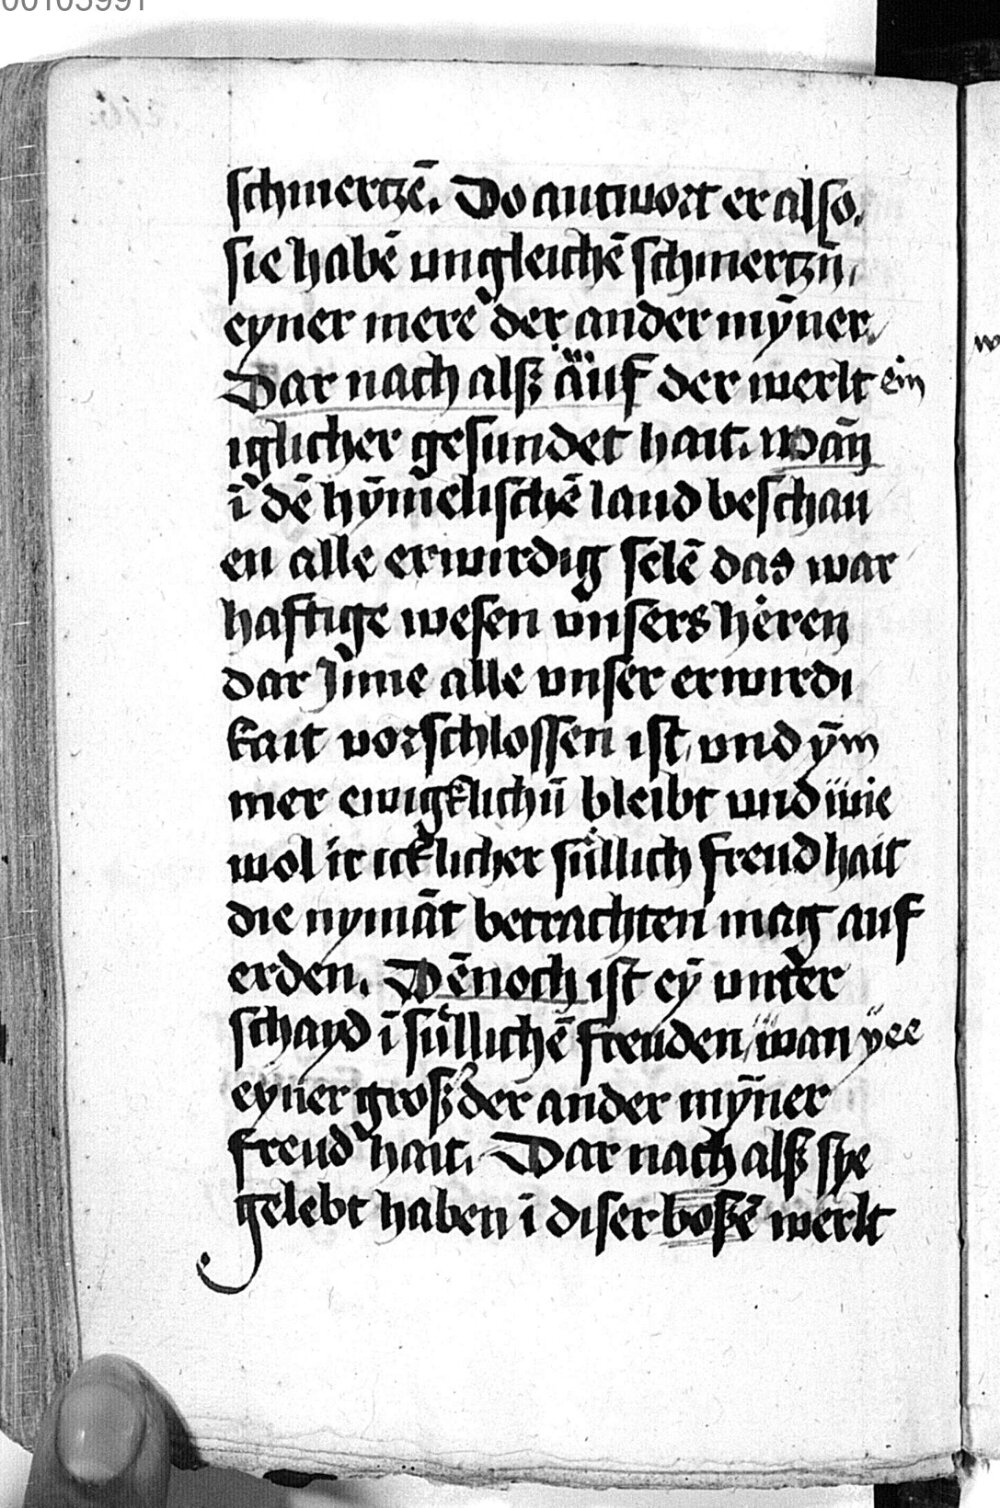 00103991
schmertzē. Do antwort er also.
sie habē ungleichē schmertzn̄,
eyner mere der ander mȳner
Dar nach alß äuf der werlt ein
iglicher gesundet hait. wāṅ
ī dē hȳmelischē land beschau
en alle erwirdig selē das war
haftige wesen vnsers heren
dar Jnne alle vnser erwirdi
kait vorschlossen ist, vnd ȳm
mer ewigklichn̄ bleibt und wie
wol ir icklicher sullich freud hait
die nymāt betrachten mag auf
erden. Dēnoch ist eȳ unter
schayd ī sullichē freuden, wan ÿee
eyner groß der ander mȳner
freud hait. Dar nach alß sye
gelebt haben ī diser boßē werlt